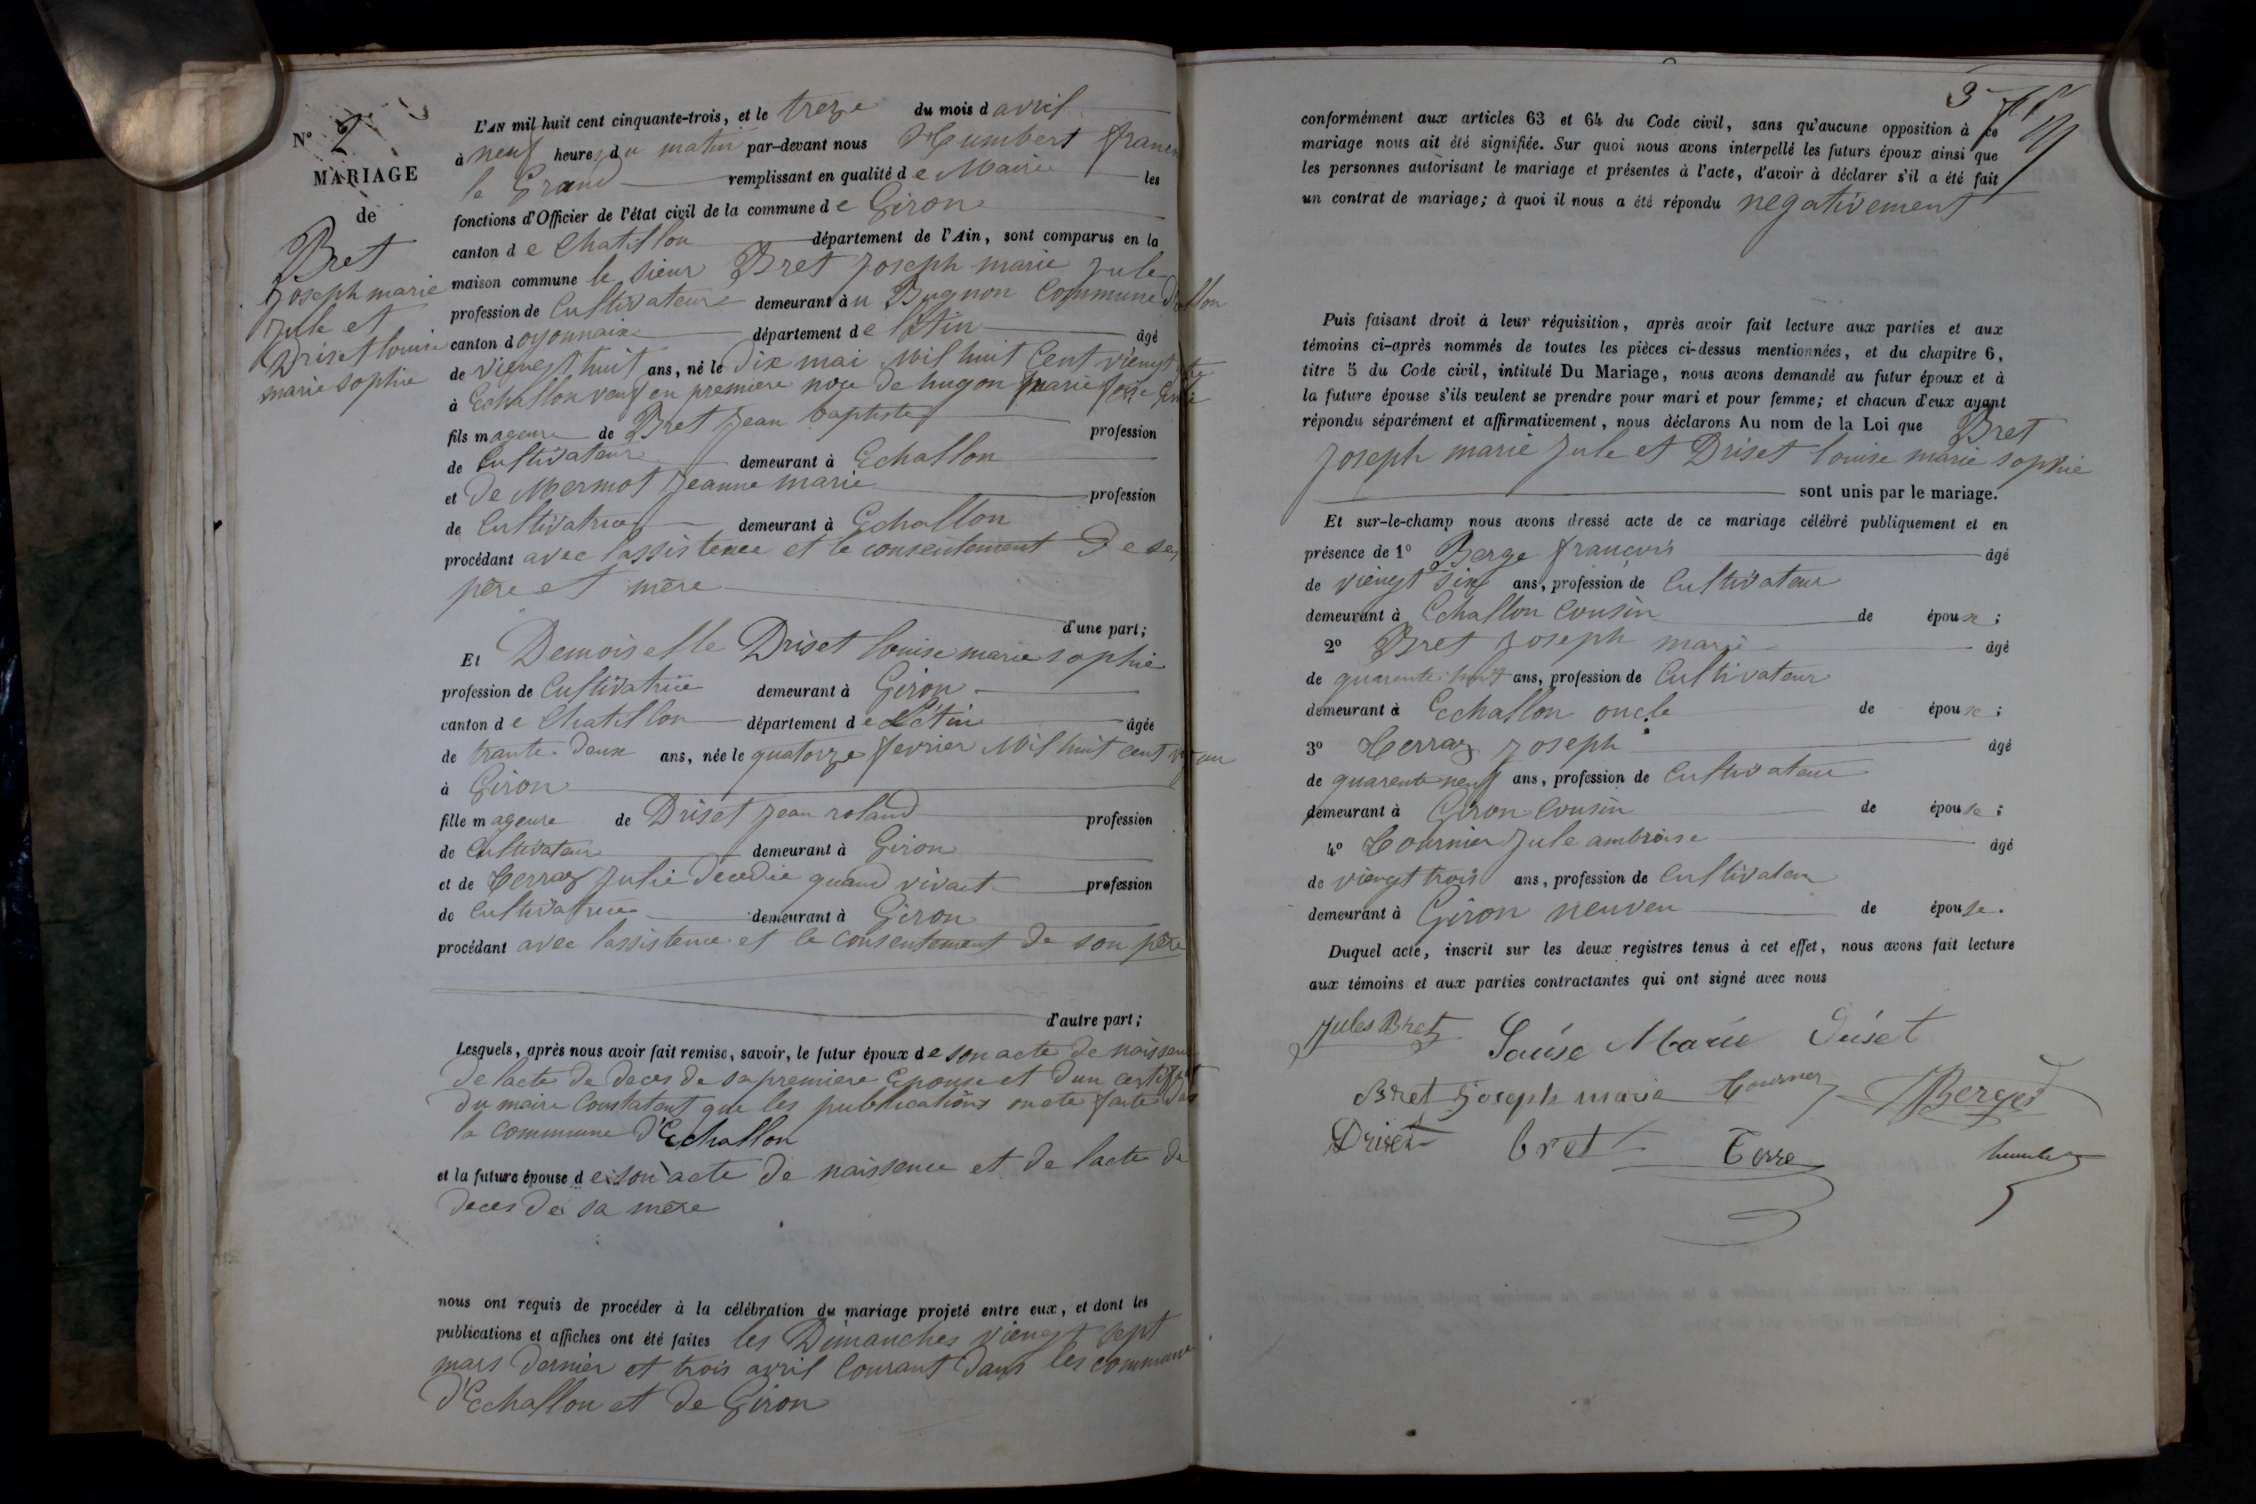 N° 2
MARIAGE
de
Bret
Joseph marie
Jule et
Driset louise
marie sophie
L'AN mil huit cent cinquante-trois, et le treze du mois d avril
à neuf heures du matin par-devant nous Humbert
le Grand remplissant en qualité de Maire les
fonctions d'Officier de l'état civil de la commune de Giron
canton de Chatillon département de l'Ain, sont comparus en la
maison commune le sieur Bret Joseph marie Jule
profession de Cultivateur demeurant au Bugnon Commune
canton d oyonnaix département de l'Ain âgé
de viengt huit ans, né le dix mai Mil huit Cent viengt
à Echallon veuf en premiere noce de hugon marie
fils mageure de Bret Jean baptiste profession
de Cultivateur demeurant à Echallon
et de Mermot Jeanne marie profession
de Cultivatrice demeurant à Echallon
procédant avec l'assistence et le consentement de ses
père et mère
d'une part;
Et Demoiselle Driset louise marie sophie
profession de Cultivatrice demeurant à Giron
canton de Chatillon département de l'Ain âgée
de trante-deux ans, née le quatorze fevrier Mil huit cent
à Giron
fille mageure de Driset Jean roland profession
de Cultivateur demeurant à Giron
et de Terraz Julie decedée quand vivait profession
de Cultivatrice demeurant à Giron
procédant avec l'assistence et le consentement de son père
d'autre part;
Lesquels, après nous avoir fait remise, savoir, le futur époux de son acte de naissence
de lacte de deces de sa premiere Epouse et d'un certificat
du maire Constatant que les publications on ete faite
la commune d'Echallon
et la future épouse de son acte de naissence et de lacte de
deces de sa mère
nous ont requis de procéder à la célébration du mariage projeté entre eux, et dont les
publications et affiches ont été faites les Dimanches viengt sept
mars dernier et trois avril Courant dans les commune
d'Echallon et de Giron
3
conformément aux articles 63 et 64 du Code civil, sans qu'aucune opposition à ce
mariage nous ait été signifiée. Sur quoi nous avons interpellé les futurs époux ainsi que
les personnes autorisant le mariage et présentes à l'acte, d'avoir à déclarer s'il a été fait
un contrat de mariage; à quoi il nous a été répondu negativement
Puis faisant droit à leur réquisition, après avoir fait lecture aux parties et aux
témoins ci-après nommés de toutes les pièces ci-dessus mentionnées, et du chapitre 6,
titre 5 du Code civil, intitulé Du Mariage, nous avons demandé au futur époux et à
la future épouse s'ils veulent se prendre pour mari et pour femme; et chacun d'eux ayant
répondu séparément et affirmativement, nous déclarons Au nom de la Loi que Bret
Joseph marie Jule et Driset louise marie sophie
sont unis par le mariage.
Et sur-le-champ nous avons dressé acte de ce mariage célébré publiquement et en
présence de 1° Berge francois âgé
de viengt six ans, profession de Cultivateur
demeurant à Echallon Cousin de épouse ;
2° Bret Joseph marie âgé
de quarente huit ans, profession de Cultivateur
demeurant à Echallon oncle de épouse ;
3° Terraz Joseph âgé
de quarente neuf ans, profession de Cultivateur
demeurant à Giron Cousin de épouse ;
4° Tournier Jule ambroise âgé
de viengt trois ans, profession de Cultivateur
demeurant à Giron neuveu de épouse.
Duquel acte, inscrit sur les deux registres tenus à cet effet, nous avons fait lecture
aux témoins et aux parties contractantes qui ont signé avec nous
Jules Bret Louise Marie Driset
Bret Joseph marie Tournier Berge
Driset bret Terra